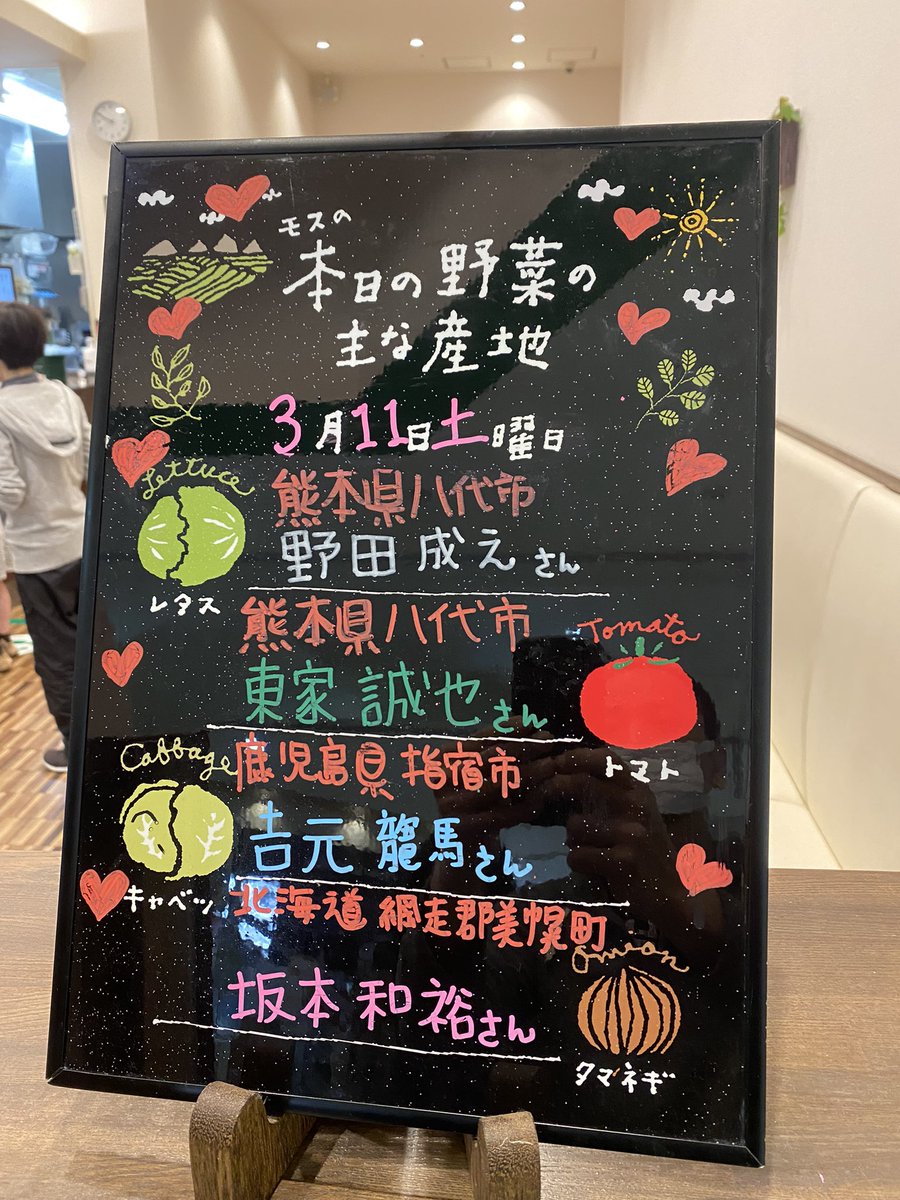 モスの
本日の野菜の
主な産地
3月11日土曜日
Lettuce
レタス
熊本県八代市
野田成えさん
熊本県八代市
東家誠也さん
Tomato
トマト
Cabbage
キャベツ
鹿児島県指宿市
吉元龍馬さん
北海道網走郡美幌町
坂本和裕さん
Onion
タマネギ